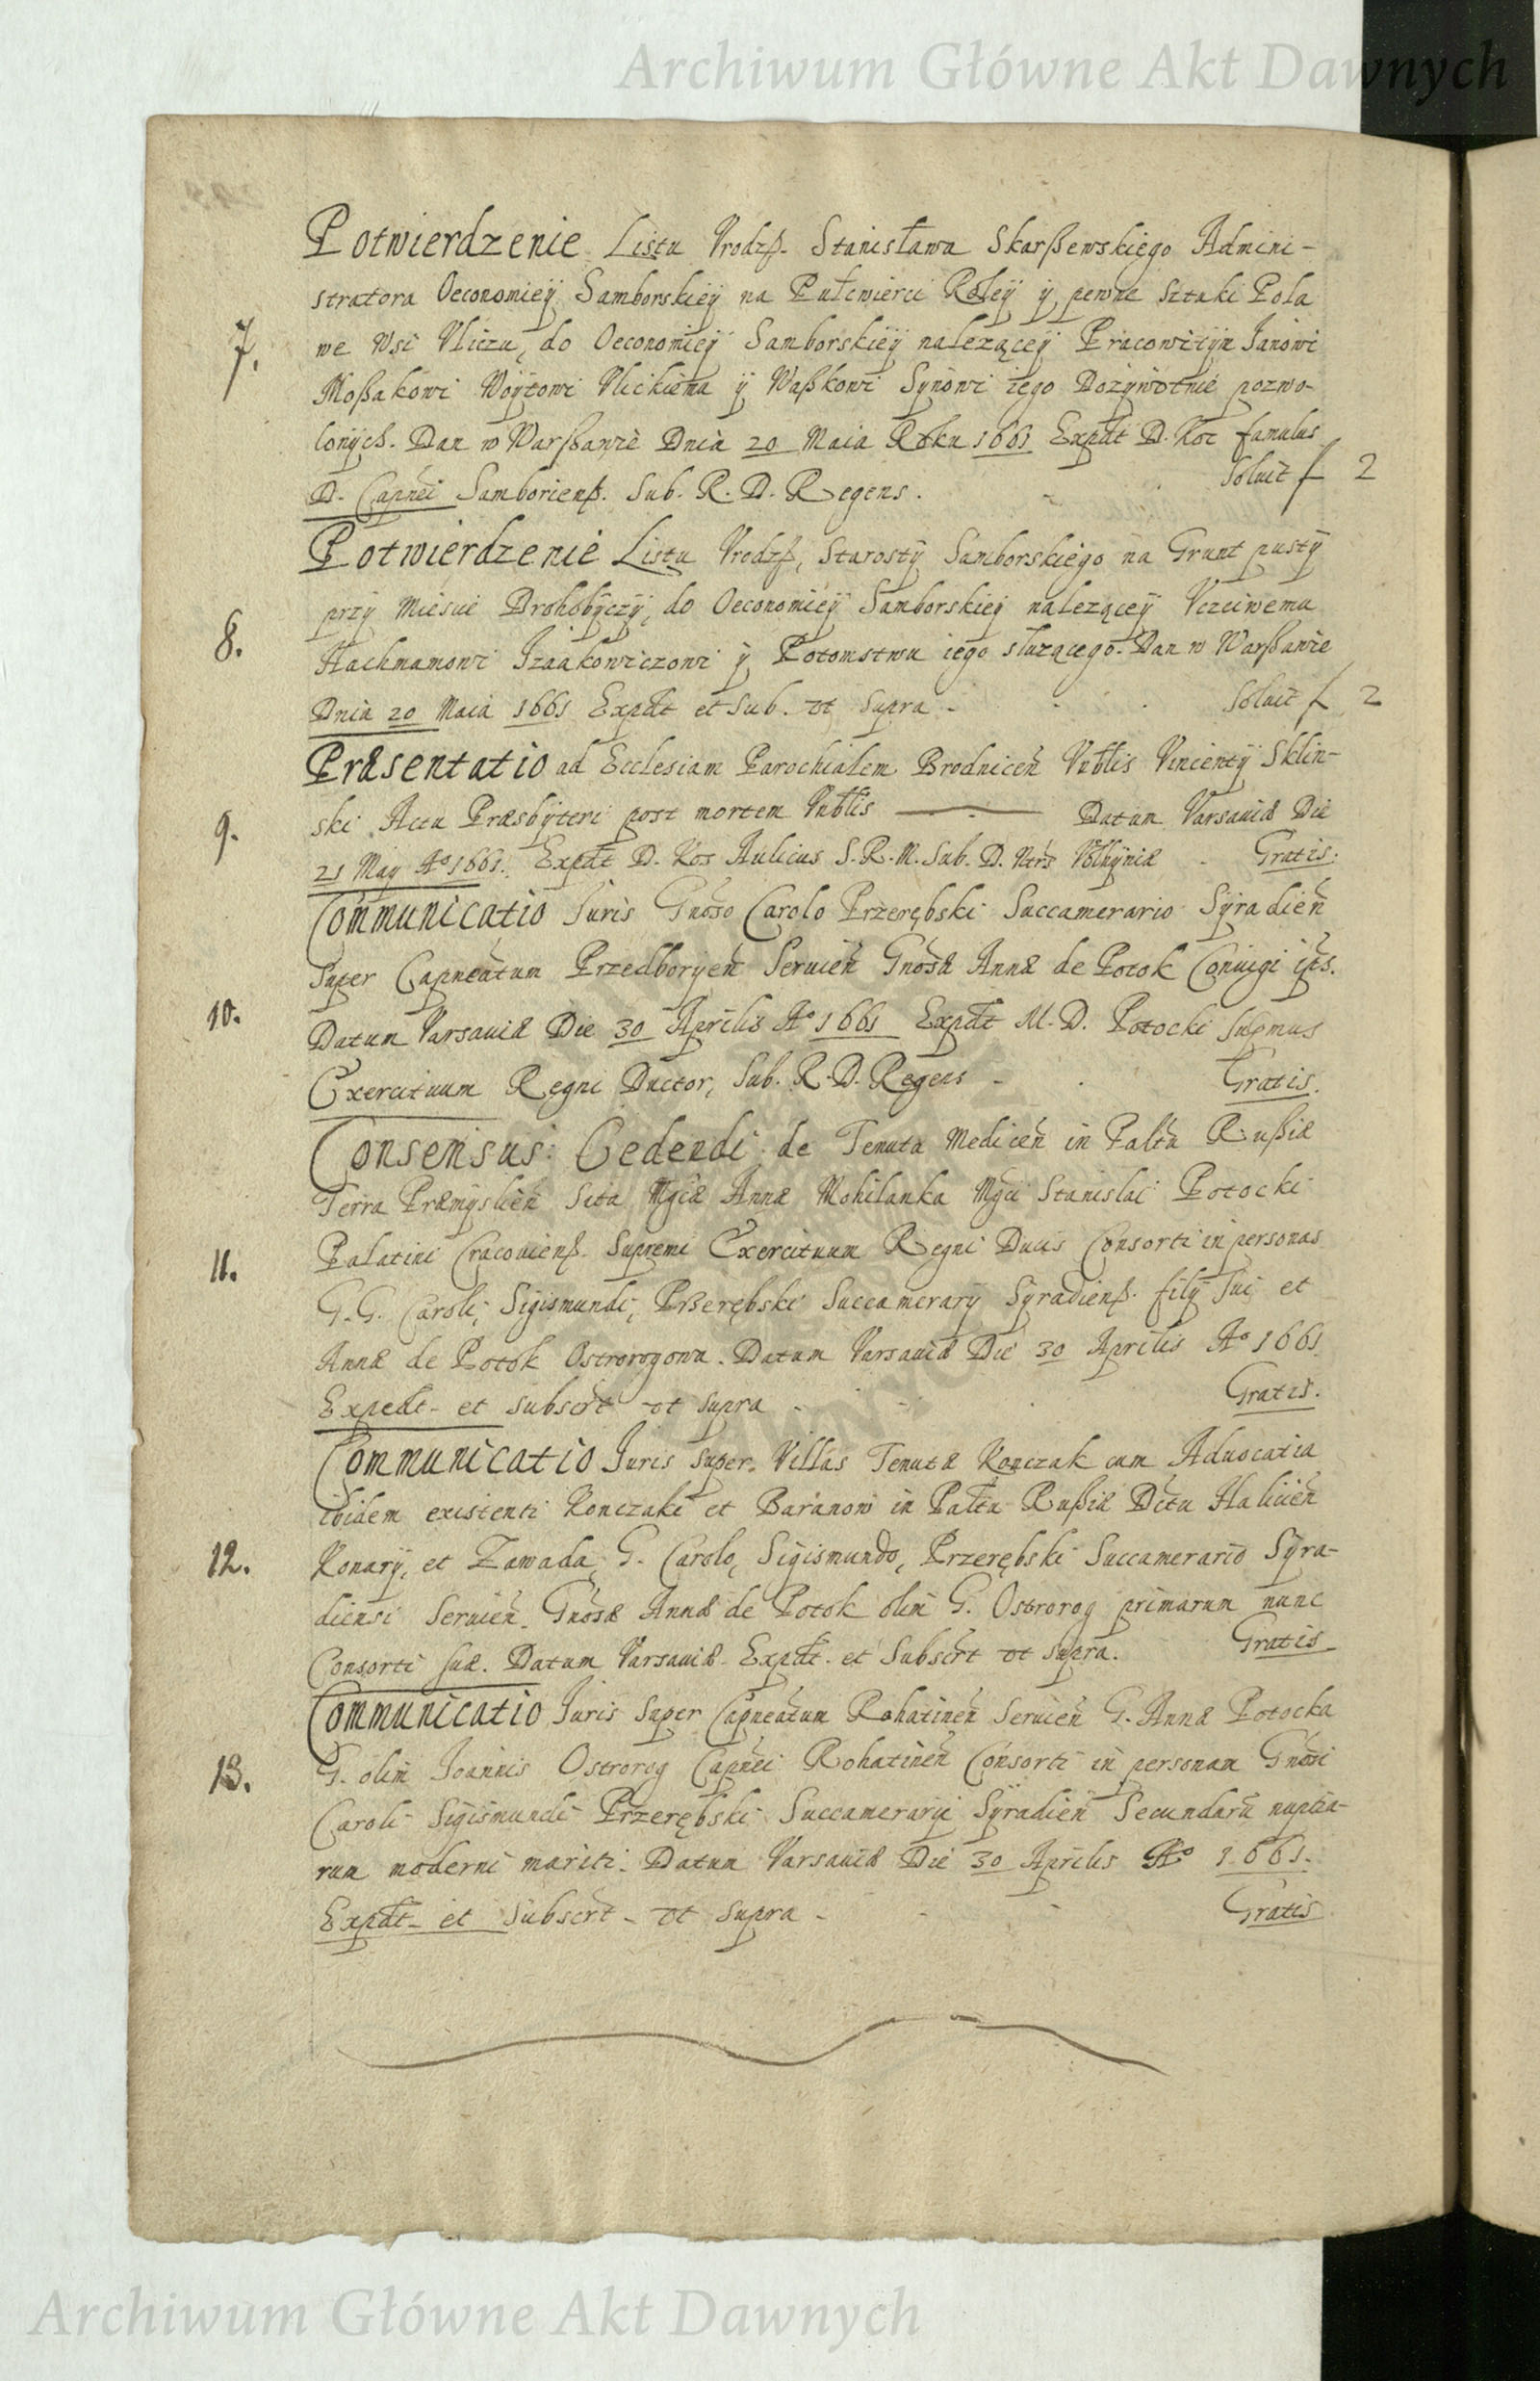 Archiwum Główne Akt Dawnych
Potwierdzenie Listu Vrodzß. Stanisława Skarßewskiego Admini-
stratora Oeconomieÿ Samborskieÿ na Pułcwierci Roleÿ ÿ pewne Sztuki Pola
7. we Wsi Vliczu, do Oeconomieÿ Samborskieÿ naleząceÿ Pracowitÿm Janowi
Moßakowi Woÿtowi Vlickiemu ÿ Waßkowi Synowi iego Dozÿwotnie pozwo-
lonÿch. Dan w Warßawie Dnia 20 Maia Roku 1661 Expdt D. Kos famulus
D. Capnei Samborienß. Sub. R. D. Regens. Soluit f 2
Potwierdzenie Listu Vrodzß, Starostÿ Samborskiego na Grunt pustÿ
przÿ Miescie Drohobÿczÿ, do Oeconomieÿ Samborskieÿ naleząceÿ Vczciwemu
8. Nachmanowi Izaakowiczowi ÿ Potomstwu iego słuzącego. Dan w Warßawie
Dnia 20 Maia 1661 Expdt et Sub. vt Supra - Soluit f 2
Præsentatio ad Ecclesiam Parochialem Brodnicen Vnblis Vincentÿ Sklin-
9. ski Actu Præsbÿteri post mortem Vnblis ——— Datum Varsauiæ Die
21 Maÿ Ao 1661. Expdt D. Kos Aulicus S. R. M. Sub. D. Gratis.
Communicatio Juris Gnoso Carolo Przerębski Succamerario Sÿradien
Super Capneatum Przedborÿen Seruien Gnosæ Annæ de Potok Coniugi ips.
10. Datum Varsauiæ Die 30 Aprilis Ao 1661 Expdt M. D. Potocki Supmus
Exercituum Regni Ductor, Sub. R. D. Regens - Gratis.
Consensus Cedendi de Tenuta Medicen in Paltu Rußiæ
Terra Præmÿslien Sita Mgcæ Annæ Mohilanka Mgci Stanislai Potocki
11. Palatini Cracouienß. Supremi Exercituum Regni Ducis Consorti in personas
G.G. Caroli, Sigismundi, Przerębski Succamerarÿ Sÿradienß. filÿ sui et
Annæ de Potok Ostrorogowa. Datum Varsauiæ Die 30 Aprilis Ao 1661
Expedt. et subscrt vt supra - Gratis.
Communicatio Juris super Villas Tenutæ Konczak cum Aduocatia
ibidem existenti Konczaki et Baranow in Paltu Rußiæ Dctu Halicien
12. Konarÿ, et Zawada, G. Carolo, Sigismundo, Przerębski Succamerario Sÿra-
diensi Seruien. Gnosæ Annæ de Potok olim G. Ostrorog primarum nunc
Consorti suæ. Datum Varsauiæ Expdt. et Subscrt vt supra. Gratis
Communicatio Juris Super Capneatum Rohatinen Seruien G. Annæ Potocka
13. G. olim Joannis Ostrorog Capnei Rohatinen Consorti in personam Gnosi
Caroli Sigismundi Przerębski Succamerarÿ Sÿradien Secundaru nuptia-
rum moderni mariti. Datum Varsauiæ Die 30 Aprilis Ao 1661.
Expdt. et Subscrt - vt supra - Gratis
Archiwum Główne Akt Dawnych